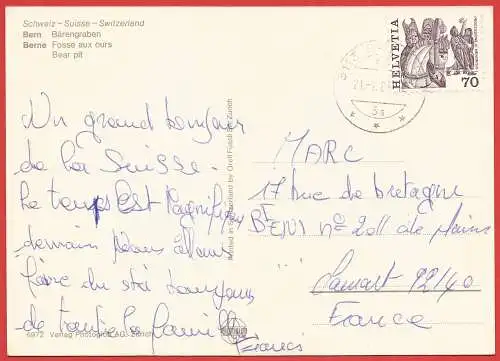 Schweiz – Suisse – Switzerland
Bern Bärengraben
Berne Fosse aux ours
Bear pit
HELVETIA
70
Un grand bonjour
de la Suisse.
Le temps Est Magnifique
demain Nous allons
faire du ski bonjour
de toute la famille
Francis
Printed in Switzerland by Orell Füssli AG Zürich
MARC
17 rue de bretagne
2011
Clamart 92140
France
6972 Verlag Photoglob AG, Zürich